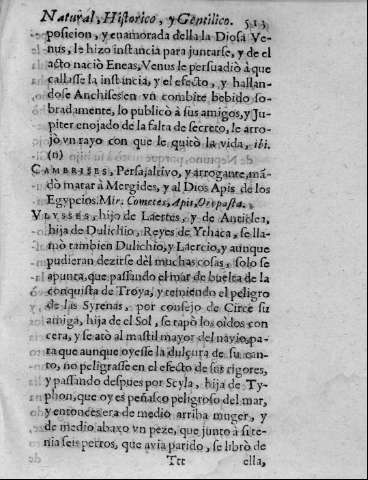 Natural, Historico, y Gentilico. 513
posicion, y enamorada della la Diosa Ve-
nus, le hizo instancia para juntarse, y de el
acto naciò Eneas, Venus le persuadiò à que
callasse la instancia, y el efecto, y hallan-
dose Anchises en vn combite bebido so-
bradamente, lo publicò à sus amigos, y Ju-
piter enojado de la falta de secreto, le arro-
jò vn rayo con que le quitò la vida, ibi.
(n)
CAMBRISES, Persa, altivo, y arrogante, mã-
dò matar à Mergides, y al Dios Apis de los
Egypcios. Mir. Cometex, Apis,
VLYSSES, hijo de Laertes, y de Anticlea,
hija de Dulichio, Reyes de Ythaca, se lla-
mò tambien Dulichio, y Laercio, y aunque
pudieran dezirse dèl muchas cosas, solo se
apunta, que passando el mar de buelta de la
conquista de Troya, y temiendo el peligro
de las Syrenas, por consejo de Circe su
amiga, hija de el Sol, se tapò los oidos con
cera, y se atò al mastil mayor del navio, pa-
ra que aunque oyesse la dulçura de su can-
to, no peligrasse en el efecto de sus rigores,
y passando despues por Scyla, hija de Ty-
phon, que oy es peñasco peligroso del mar,
y entonces era de medio arriba muger, y
de medio abaxo vn peze, que junto à si te-
nia seis perros, que avia parido, se librò de
Ttt ella,